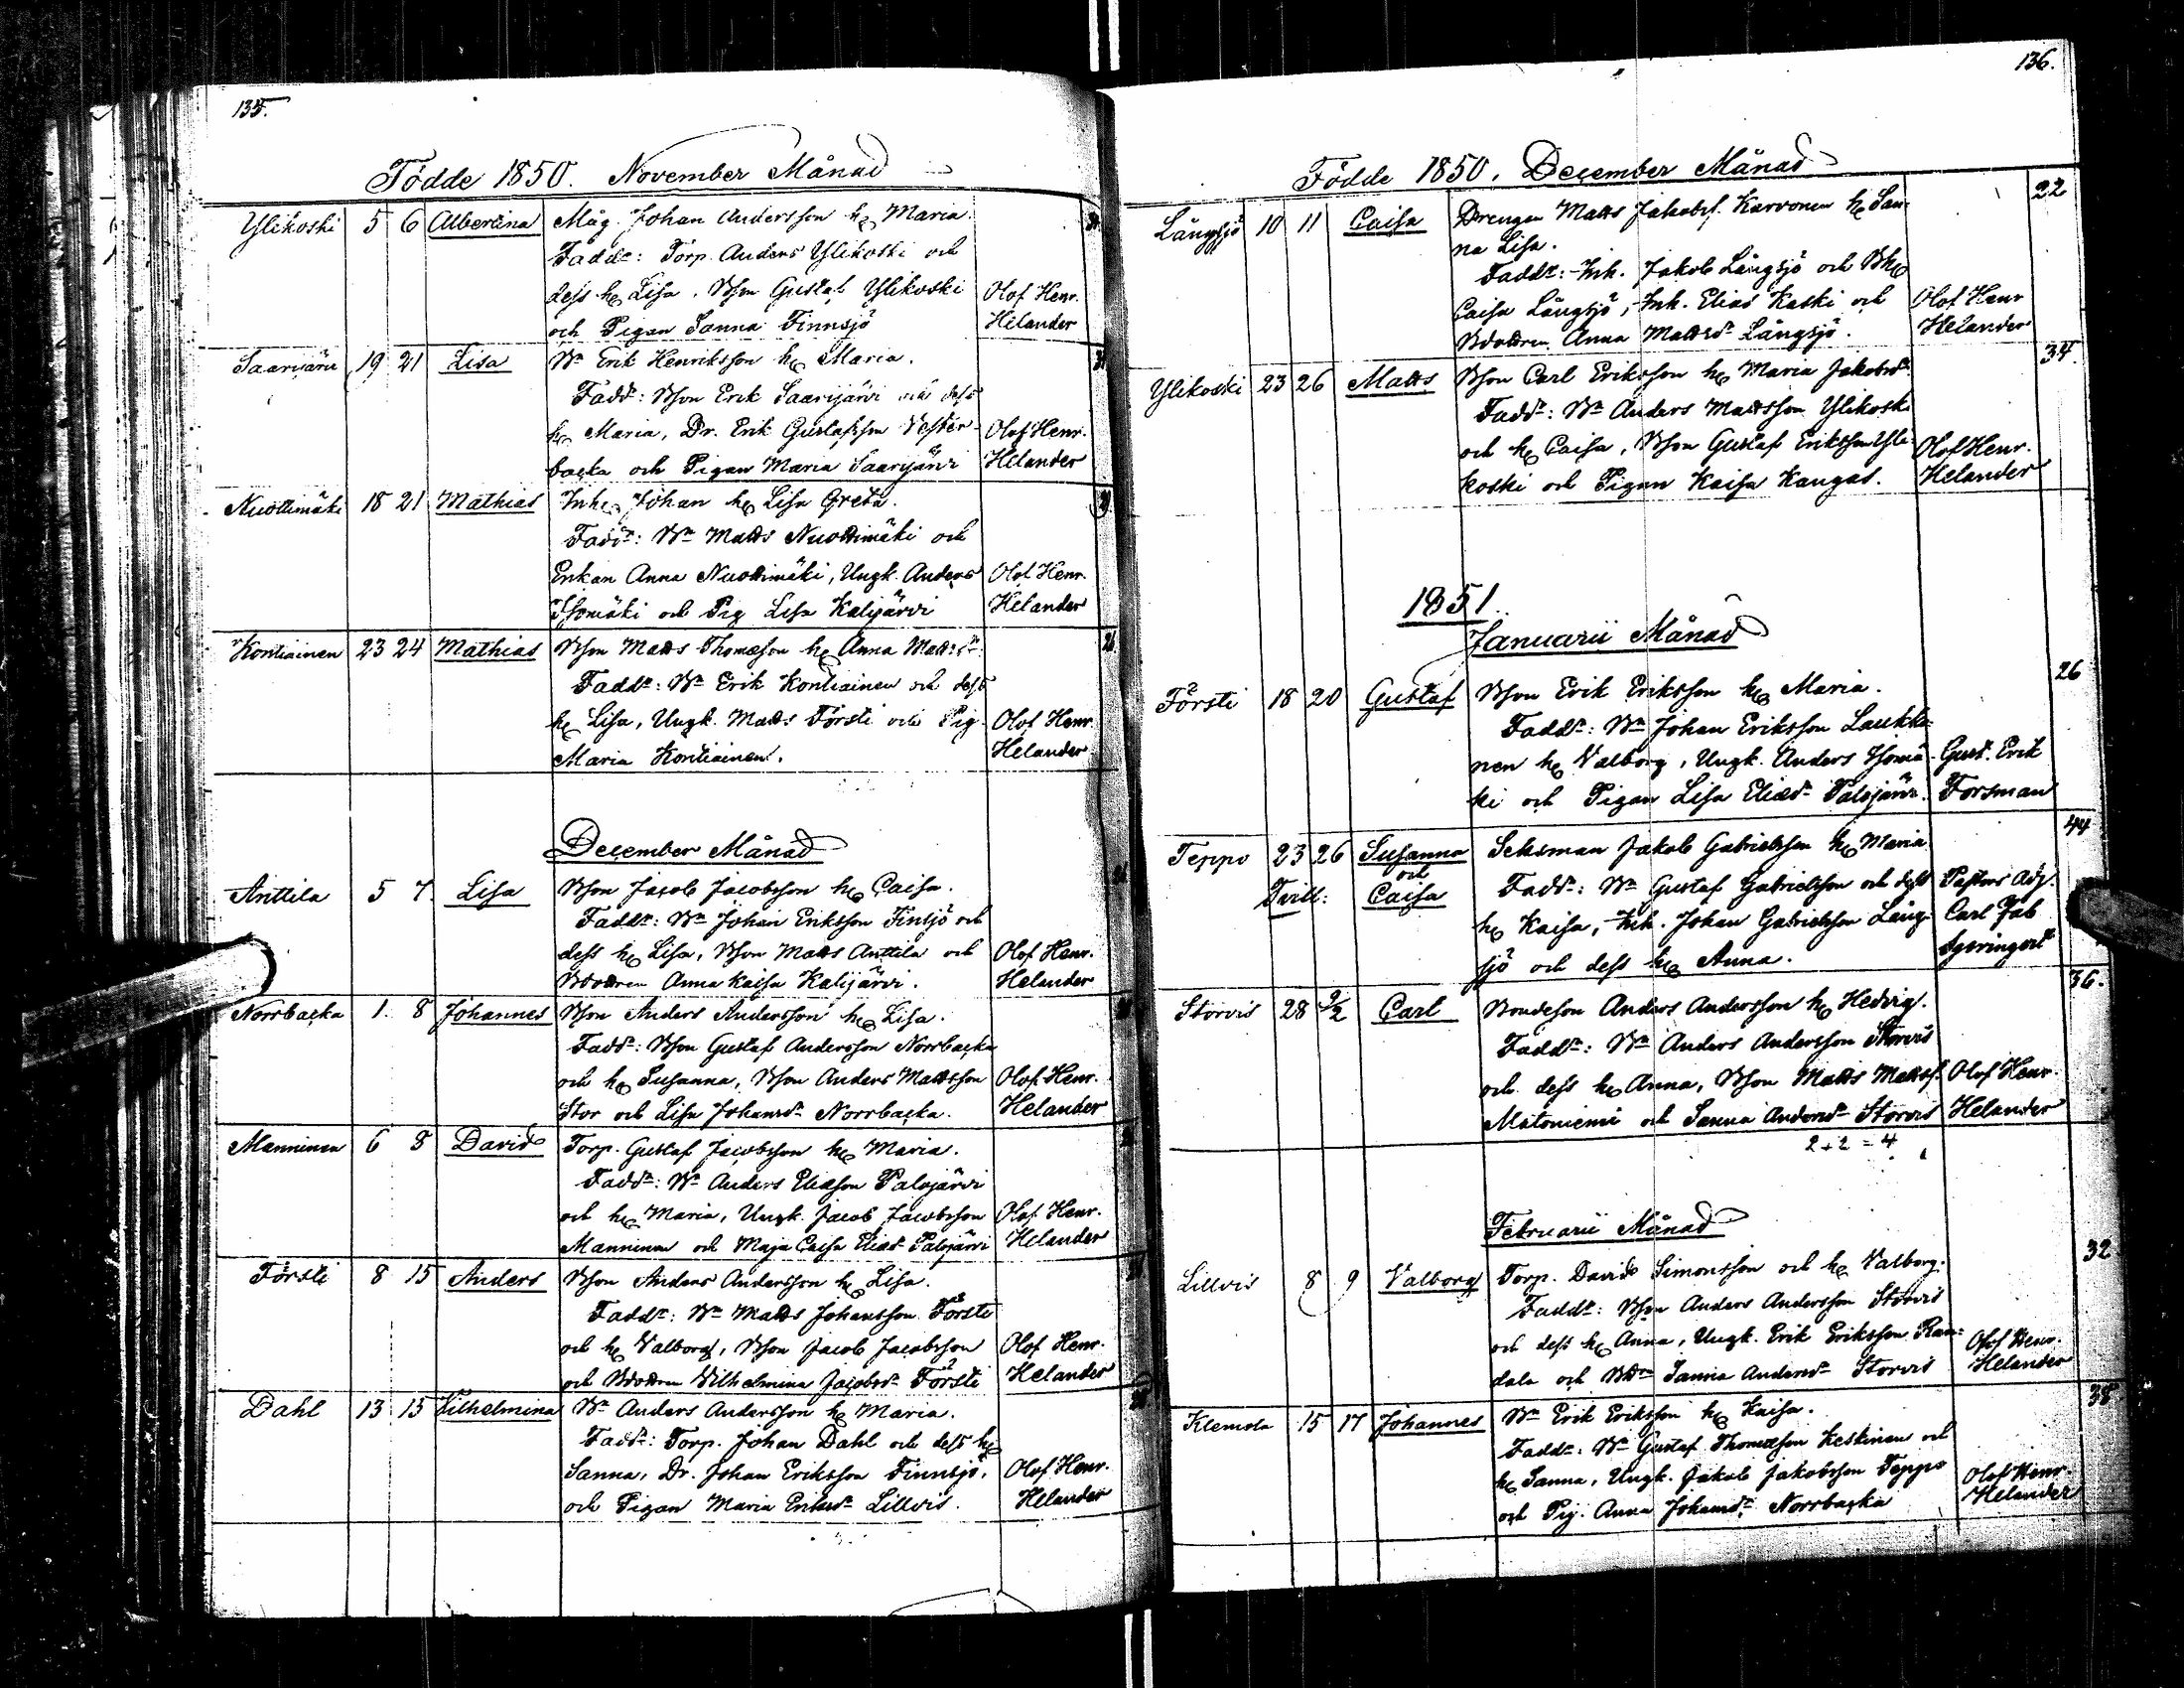 135.
Födde 1850. November Månad
Ylikoski 5 6 Albertina Måg. Johan Andersson h. Maria.
Faddr: Torp. Anders Ylikoski och
dess h. Lisa, Bson Gustaf Ylikoski Olof Henr.
och Pigan Sanna Finnsjö Helander
Saarijärvi 19 21 Lisa Bn Erik Henriksson h. Maria.
Faddr: Bson Erik Saarijärvi och dess
h. Maria, Dr. Erik Gustafsson Vester- Olof Henr.
backa och Pigan Maria Saarijärvi Helander
Nuottimäki 18 21 Mathias Inh. Johan h. Lisa Greta.
Faddr: Bn Matts Nuottimäki och
Enkan Anna Nuottimäki, Ungk. Anders Olof Henr.
Isomäki och Pig Lisa Kalijärvi Helander
Kontiainen 23 24 Mathias Bson Matts Thomasson h. Anna Mattsdr 26
Faddr: Bn Erik Kontiainen och dess
h. Lisa, Ungk. Matts Försti och Pig. Olof Henr.
Maria Kontiainen. Helander
December Månad
Anttila 5 7. Lisa Bson Jacob Jacobsson h. Caisa.
Faddr: Bn Johan Eriksson Finsjö och
dess h. Lisa, Bson Matts Anttila och Olof Henr.
Bdottren Anna Kaisa Kalijärvi. Helander
Norrbacka 1. 8 Johannes Bson Anders Andersson h. Lisa.
Faddr: Bson Gustaf Andersson Norrbacka
och h. Susanna, Bson Anders Mattsson Olof Henr.
Stor och Lisa Johansdr Norrbacka. Helander
Manninen 6 8 David Torp. Gustaf Jacobsson h. Maria.
Faddr: Bn Anders Eliasson Palojärvi
och h. Maria, Ungk. Jacob Jacobsson Olof Henr.
Manninen och Maja Caisa Eliasdr Palojärvi Helander
Försti 8 15 Anders Bson Anders Andersson h. Lisa.
Faddr: Bn Matts Johansson Försti
och h. Valborg, Bson Jacob Jacobsson Olof Henr.
och Bdottren Vilhelmina Jacobsdr Försti Helander
Dahl 13 15 Vilhelmina Bn Anders Andersson h. Maria.
Faddr: Torp. Johan Dahl och dess h.
Sanna, Dr. Johan Eriksson Finnsjö, Olof Henr.
och Pigan Maria Eriksdr Lillvis. Helander
136.
Födde 1850. December Månad
Långsjö 10 11 Caisa Drengen Matts Jakobss. Karvonen h. San- 22
na Lisa.
Faddr: Inh. Jakob Långsjö och Bh
Caisa Långsjö, Inh. Elias Kaski och Olof Henr
Bdottren Anna Mattsdr Långsjö. Helander
Ylikoski 23 26 Matts Bson Carl Eriksson h. Maria Jakobsdr 34.
Faddr: Bn Anders Mattsson Ylikoski
och h. Caisa, Bson Gustaf Eriksson Yli- Olof Henr.
koski och Pigan Kaisa Kangas. Helander
1851.
Januarii Månad
Försti 18 20 Gustaf Bson Erik Eriksson h. Maria. 26
Faddr: Bn Johan Eriksson Laukko-
nen h. Valborg, Ungk. Anders Isomä- Gust. Erik
ki och Pigan Lisa Eliasdr Palojärvi. Forsman
Teppo 23 26 Susanna Seksman Jakob Gabrielsson h. Maria 44
och
Tvill: Caisa Faddr: Bn Gustaf Gabrielsson och dess Pastors Adj.
h. Kaisa, Inh. Johan Gabrielsson Lång- Carl Jab
sjö och dess h. Anna.
Storvis 28 2/2 Carl Bondeson Anders Andersson h. Hedvig. 36.
Faddr: Bn Anders Andersson Storvis
och dess h. Anna, Bson Matts Mattss. Olof Henr.
Matoniemi och Sanna Andersdr Storvis Helander
2+2=4
Februarii Månad
Lillvis 8 9 Valborg Torp. David Simonsson och h. Valborg. 32
Faddr: Bson Anders Andersson Storvis
och dess h. Anna, Ungk. Erik Eriksson Ran- Olof Henr.
dala och Bdtr Sanna Andersdr Storvis Helander
Klemola 15 17 Johannes Bn Erik Eriksson h. Kaisa. 38
Faddr: Bn Gustaf Thomasson Keskinen och
h. Sanna, Ungk. Jakob Jakobsson Teppo Olof Henr.
och Pig. Anna Johansdr Norrbacka Helander